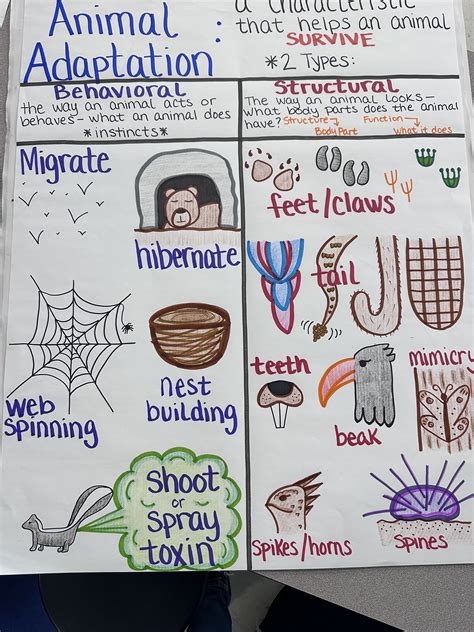 Animal
Adaptation :
a characteristic
that helps an animal
SURVIVE
*2 Types:
Behavioral
the way an animal acts or
behaves - what an animal does
*instincts*
Structural
The way an animal looks -
what body parts does the animal
have? Structure → Function →
Body Part what it does
Migrate
hibernate
web
spinning
nest
building
shoot
or
spray
toxin
feet/claws
tail
teeth
beak
mimicry
spikes/horns
spines